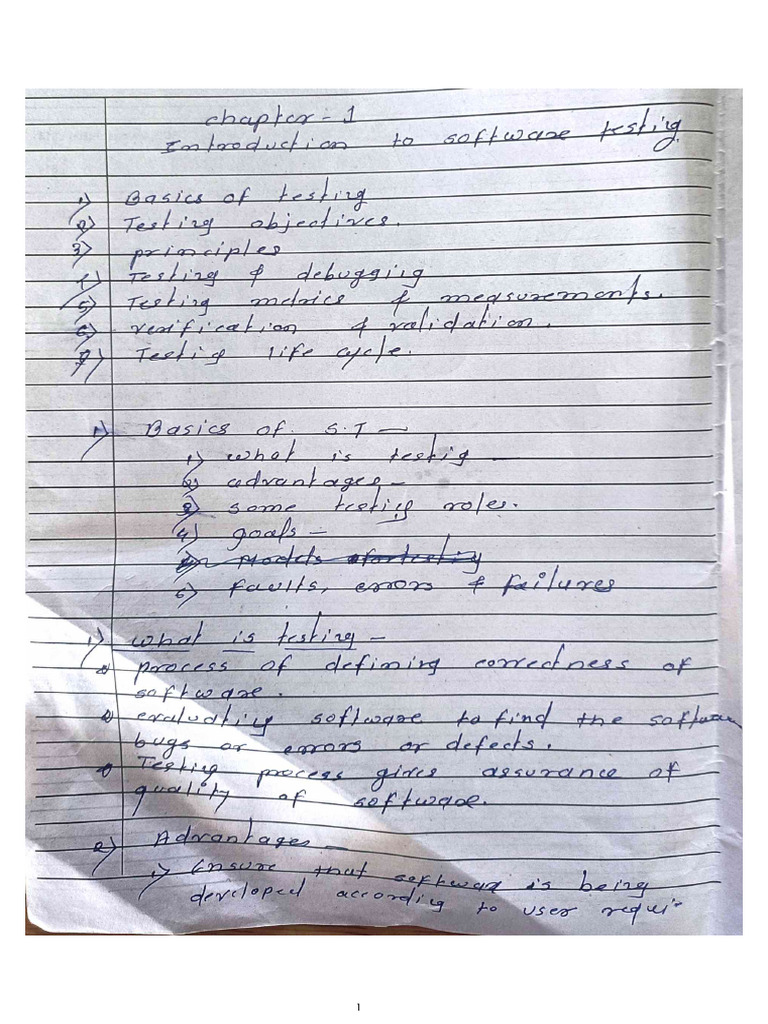 chapter - 1
Introduction to software testing
1) Basics of testing
2) Testing objectives.
3) principles
4) Testing & debugging
5) Testing metrics & measurements.
6) verification & validation.
7) Testing life cycle.
1) Basics of S.T —
1) what is testig —
2) advantages —
3) some testing roles.
4) goals —
Models of testing
5) faults, errors & failures
1) what is testing —
process of defining correctness of
software.
evaluating software to find the software
bugs or errors or defects.
Testing process gives assurance of
quality of software.
2) Advantages —
1) Ensure that software is being
developed according to user requi-
1